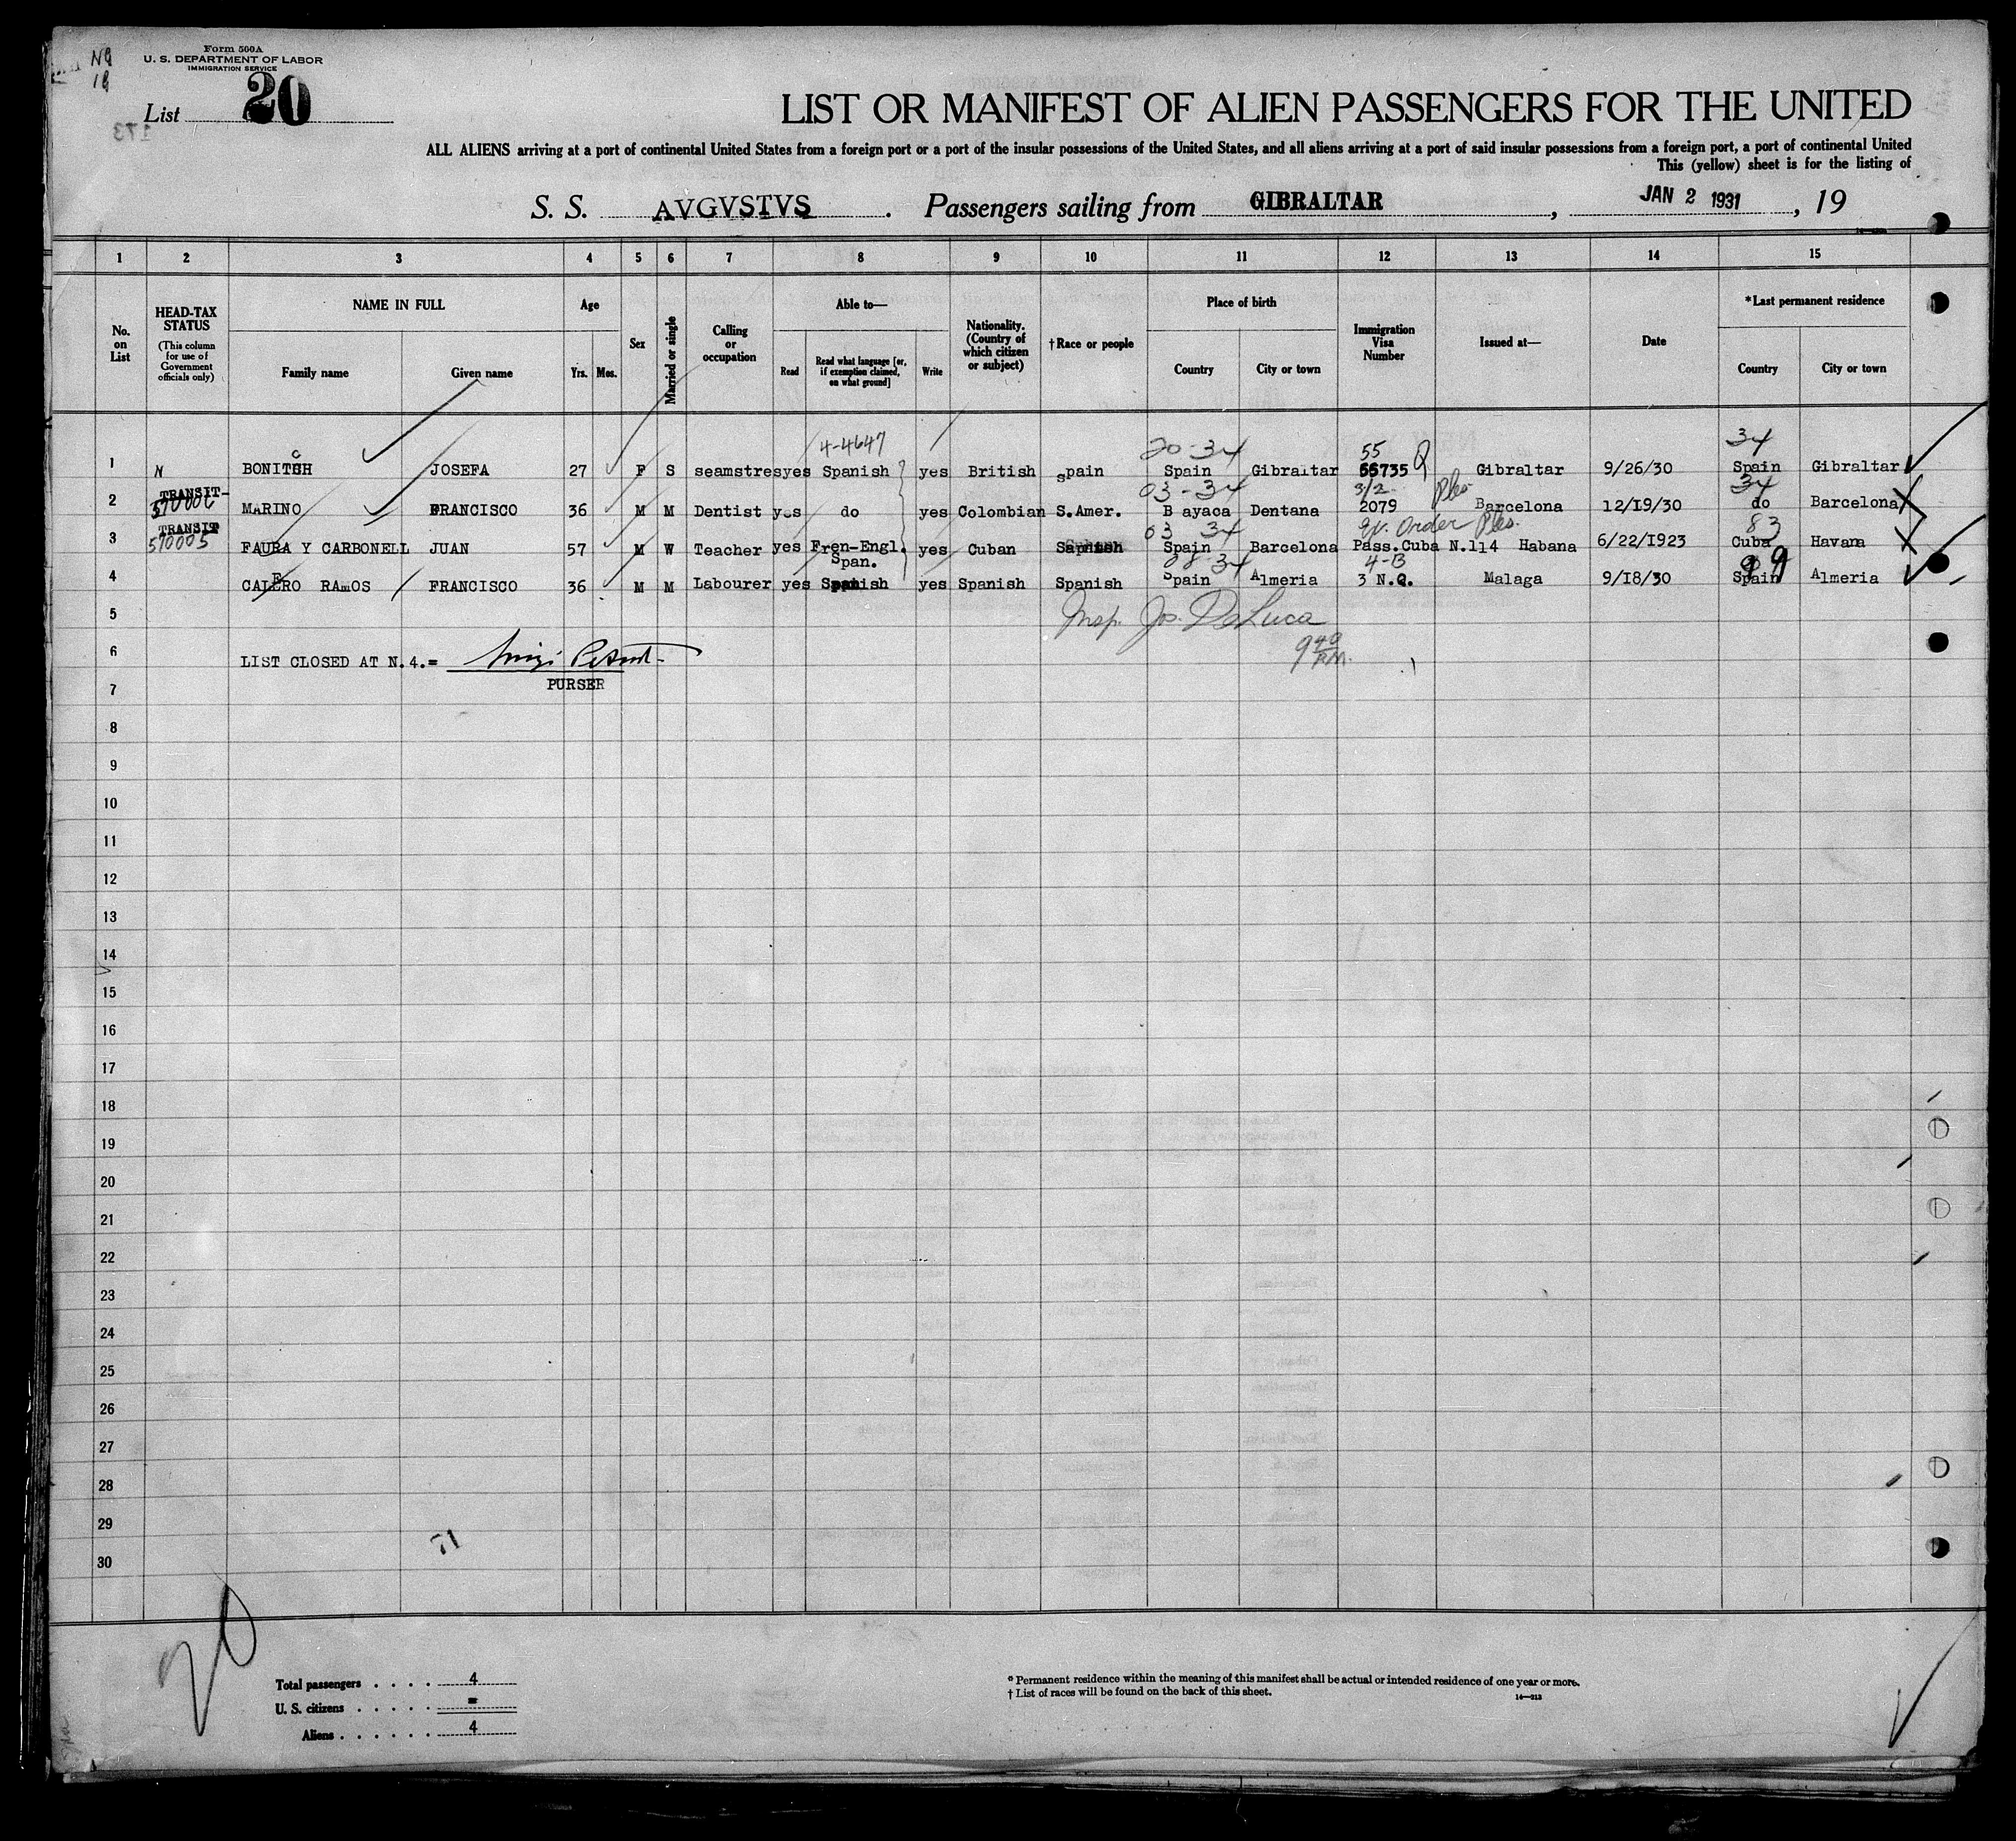 NB
18
Form 500A
U. S. DEPARTMENT OF LABOR
IMMIGRATION SERVICE
List 20
173
LIST OR MANIFEST OF ALIEN PASSENGERS FOR THE UNITED
ALL ALIENS arriving at a port of continental United States from a foreign port or a port of the insular possessions of the United States, and all aliens arriving at a port of said insular possessions from a foreign port, a port of continental United
This (yellow) sheet is for the listing of
S. S. AVGVSTVS . Passengers sailing from GIBRALTAR , JAN 2 1931 , 19
1 2 3 4 5 6 7 8 9 10 11 12 13 14 15
No. on List
HEAD-TAX STATUS (This column for use of Government officials only)
NAME IN FULL
Family name Given name
Age
Yrs. Mos.
Sex
Married or single
Calling or occupation
Able to—
Read Read what language [or, if exemption claimed, on what ground] Write
Nationality. (Country of which citizen or subject)
† Race or people
Place of birth
Country City or town
Immigration Visa Number
Issued at—
Date
* Last permanent residence
Country City or town
4-4647 20-34 55 34
1 N BONITCH JOSEFA 27 F S seamstres yes Spanish yes British Spain Spain Gibraltar 55735 Gibraltar 9/26/30 Spain Gibraltar
TRANSIT- 03-34 3/2 34
2 57000C MARINO FRANCISCO 36 M M Dentist yes do yes Colombian S.Amer. B ayaca Dentana 2079 Barcelona 12/19/30 do Barcelona
TRANSIT 03 34 Order 83
3 570005 FAURA Y CARBONELL JUAN 57 M W Teacher yes Fren-Engl. Span. yes Cuban Spanish Spain Barcelona Pass.Cuba N.114 Habana 6/22/1923 Cuba Havana
34 4-B 99
4 CALERO RAMOS FRANCISCO 36 M M Labourer yes Spanish yes Spanish Spanish Spain Almeria 3 N.Q. Malaga 9/18/30 Spain Almeria
5 Insp. Jos. DeLuca
6 LIST CLOSED AT N.4.= 9 40 P.M.
PURSER
7
8
9
10
11
12
13
14
15
16
17
18
19
20
21
22
23
24
25
26
27
28
29
30
71
20
Total passengers . . . . 4
U. S. citizens . . . . . =
Aliens . . . . . . 4
* Permanent residence within the meaning of this manifest shall be actual or intended residence of one year or more.
† List of races will be found on the back of this sheet.
14—213